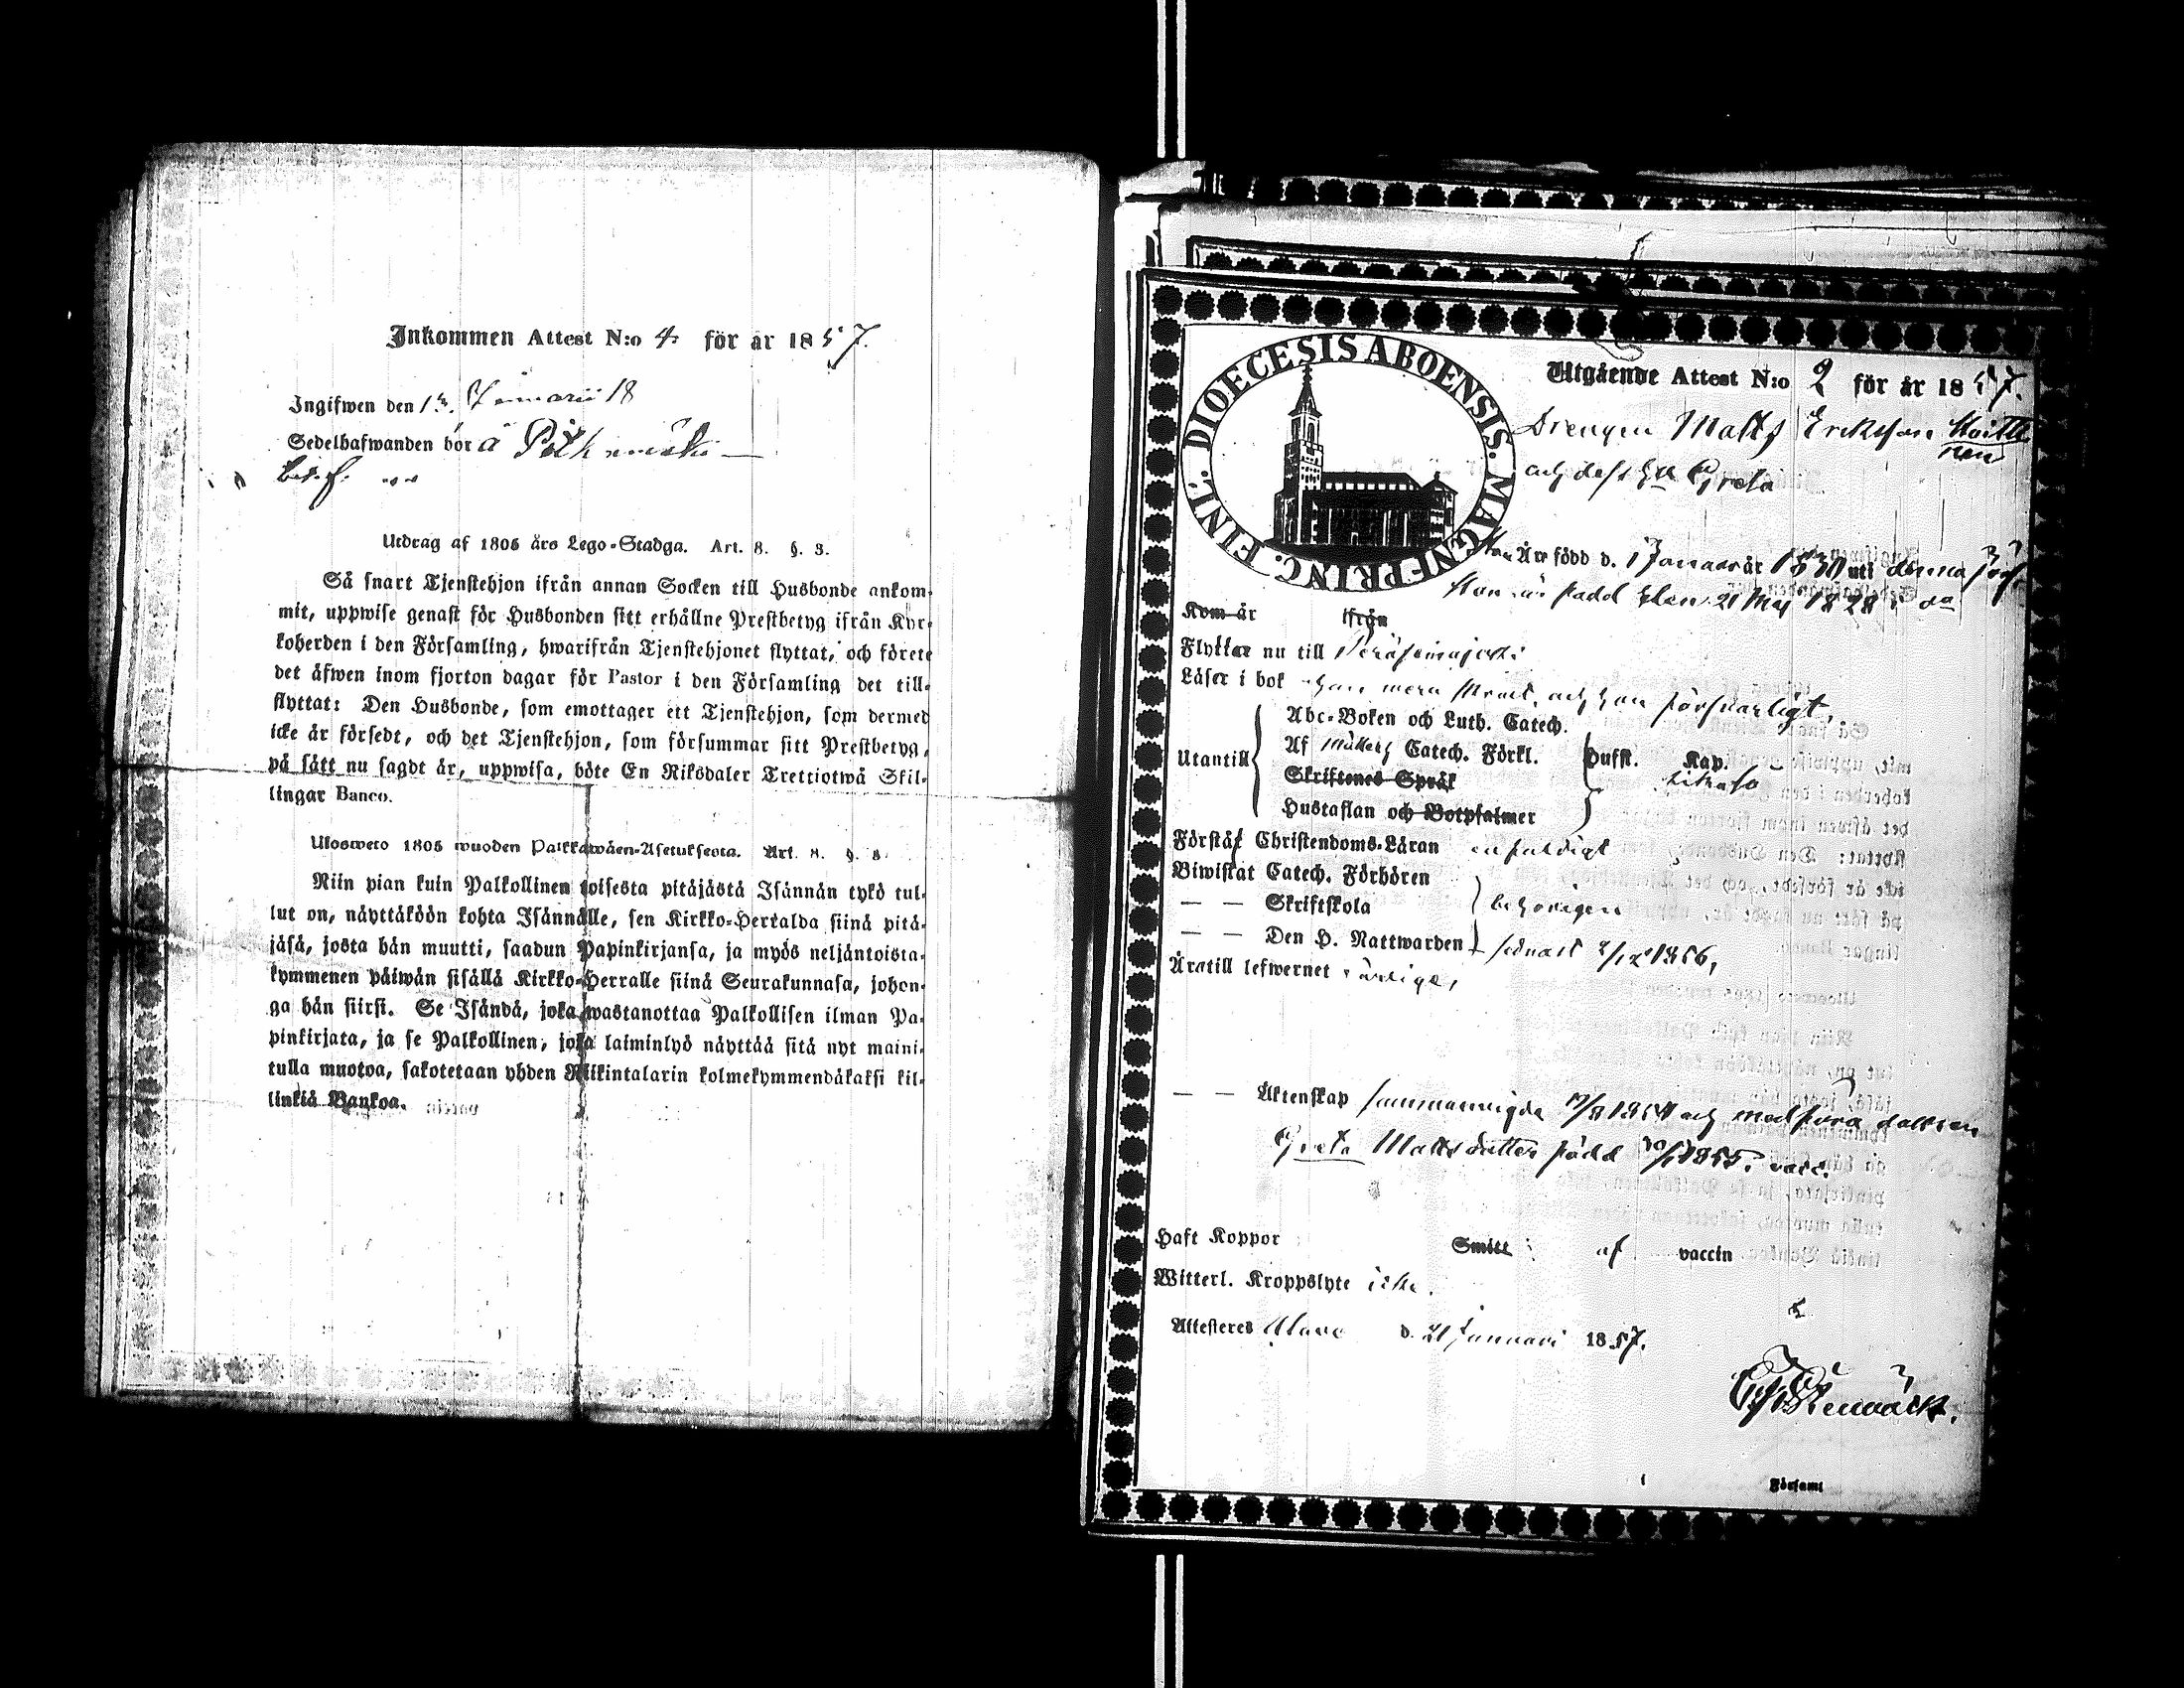 Inkommen Attest N:o 4 för år 1857.
Ingifwen den Januarii 18
Sedelhafwanden bor å
Utdrag af 1805 års Lego-Stadga. Art. 8. §. 3.
Så snart Tjenstehjon ifrån annan Socken till Husbonde ankom-
mit, uppwise genast för Husbonden sitt erhållne Prestbetyg ifrån Kyr-
koherden i den Församling, hwarifrån Tjenstehjonet flyttat, och förete
det äfwen inom fjorton dagar för Pastor i den Församling det till-
flyttat: Den Husbonde, som emottager ett Tjenstehjon, som dermed
icke är försedt, och det Tjenstehjon, som försummar sitt Prestbetyg,
på sätt nu sagdt är, uppwisa, böte En Riksdaler Trettiotwå Skil-
lingar Banco.
Ulosweto 1805 wuoden Palkkawäen-Asetuksesta. Art. 8. §. 3.
Niin pian kuin Palkollinen toisesta pitäjästä Isännän tykö tul-
lut on, näyttäköön kohta Isännälle, sen Kirkko-Herralda siinä pitä-
jäsä, josta hän muutti, saadun Papinkirjansa, ja myös neljäntoista-
kymmenen päiwän sisällä Kirkko-Herralle siinä Seurakunnasa, johon-
ga hän siirsi. Se Isändä, joka wastanottaa Palkollisen ilman Pa-
pinkirjata, ja se Palkollinen, joka laiminlyö näyttää sitä nyt maini-
tulla muotoa, sakotetaan yhden Riikintalarin kolmekymmendäkaksi kil-
linkiä Bankoa.
DIOECESIS ABOENSIS. MAGNI-PRINC. FINL.
Utgående Attest N:o 2 för år 1857.
Drengen Matts Eriksson
och dess Greta
Han Är född d. 1 Januari år 1830 uti denna förs.
Hon är född den 21 Maj 1828 i do
Kom år ifrån
Flyttar nu till Peräseinäjoki
Läser i bok han mera och hon försvarligt,
Abc-Boken och Luth. Catech.
Utantill Af Catech. Förkl. Dufst. Kap.
Skriftenes Språk
Hustaflan och Botpsalmer
Förstår Christendoms-Läran enfaldigt
Biwistat Catech. Förhören
— — Skriftskola behörigen
— — Den H. Nattwarden sednast 1856,
Äratill lefwernet ärlige,
— — Äktenskap sammanvigde 1854 och medföra dottren
Greta Mattsdotter född 1855. vacc.
Haft Koppor Smitt af vaccin
Witterl. Kroppslyte icke.
Attesteres Alavo d. 21 Januari 1857.
Församl